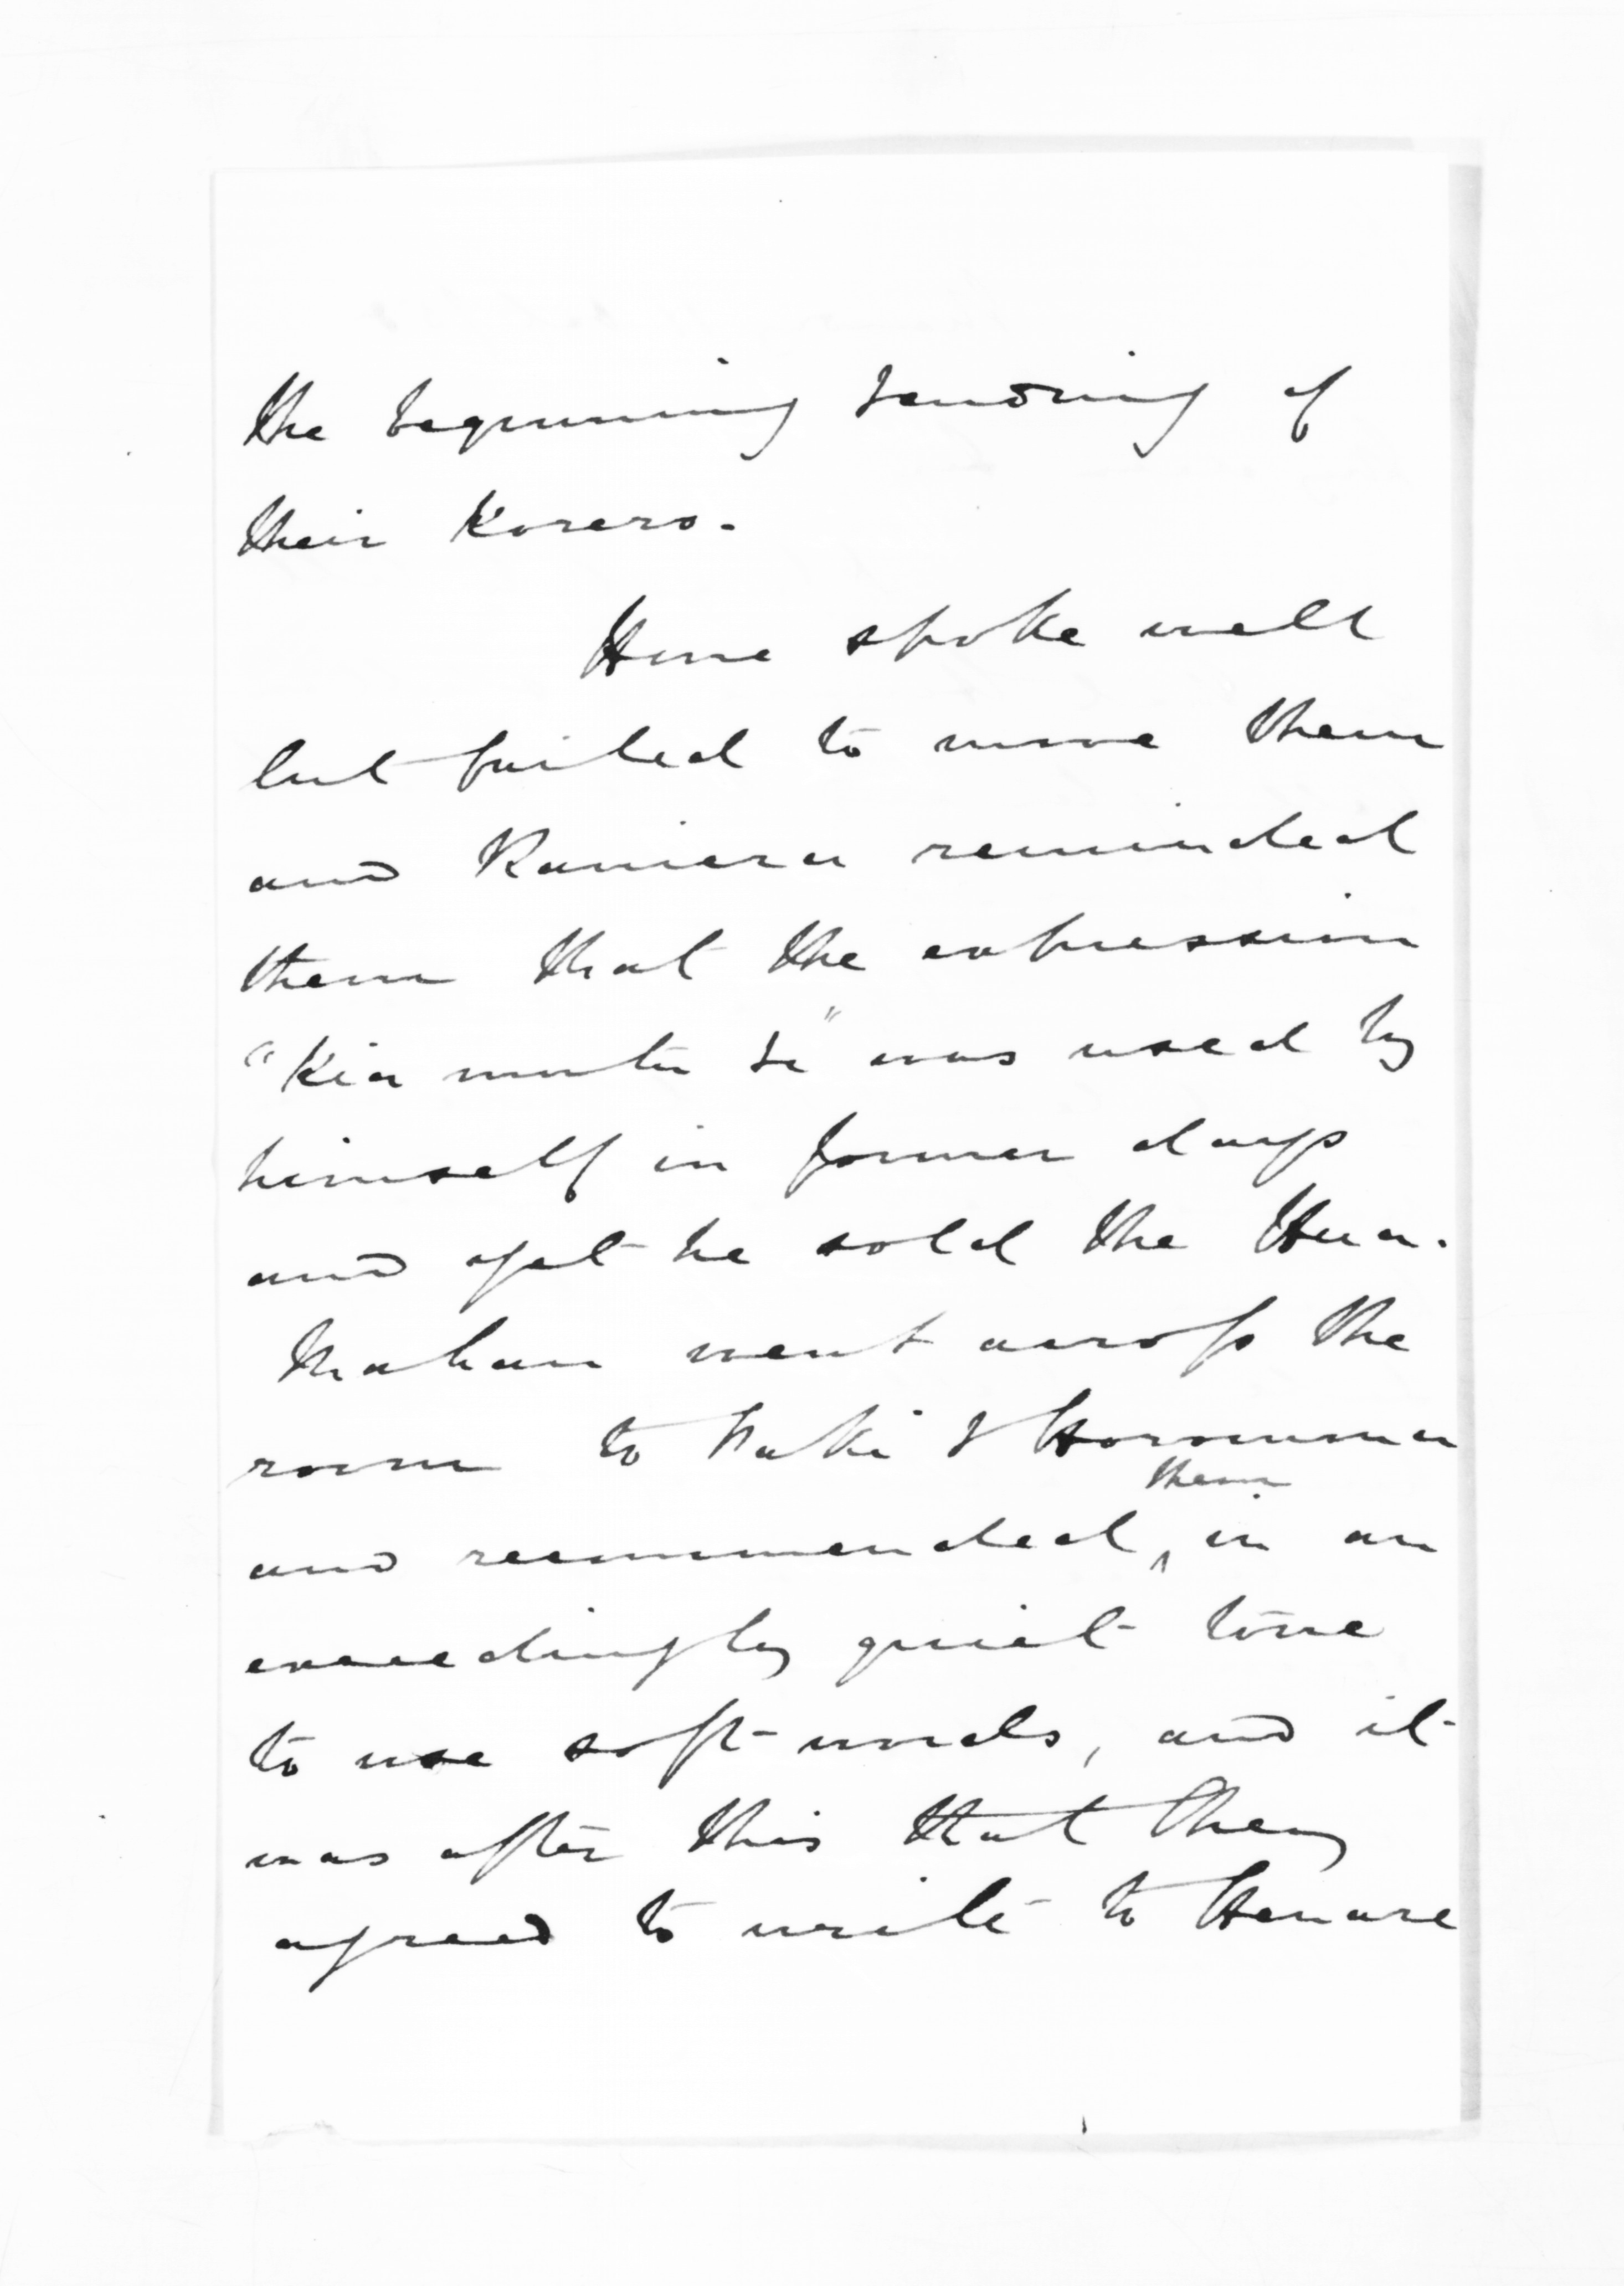 the beginning & ending of
their Korero.
Hone spoke well
but failed to move them
and Raniera reminded
them that the expression
"Kia mutu" was used by
himself in former days
and yet he sold the Hua.
Mahau went across the
room to &
and recommended them in an
exceedingly quiet tone
to use soft words, and it
was after this that they
agreed to write to Henare